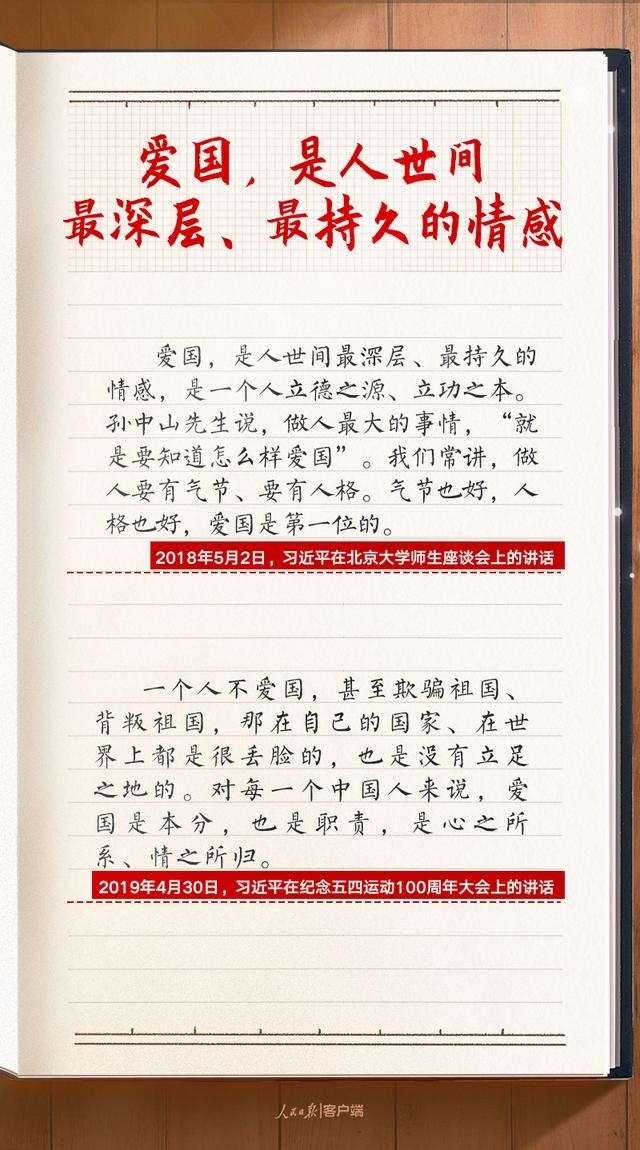 爱国，是人世间
最深层、最持久的情感
爱国，是人世间最深层、最持久的
情感，是一个人立德之源、立功之本。
孙中山先生说，做人最大的事情，“就
是要知道怎么样爱国”。我们常讲，做
人要有气节、要有人格。气节也好，人
格也好，爱国是第一位的。
2018年5月2日，习近平在北京大学师生座谈会上的讲话
一个人不爱国，甚至欺骗祖国、
背叛祖国，那在自己的国家、在世
界上都是很丢脸的，也是没有立足
之地的。对每一个中国人来说，爱
国是本分，也是职责，是心之所
系、情之所归。
2019年4月30日，习近平在纪念五四运动100周年大会上的讲话
人民日报|客户端